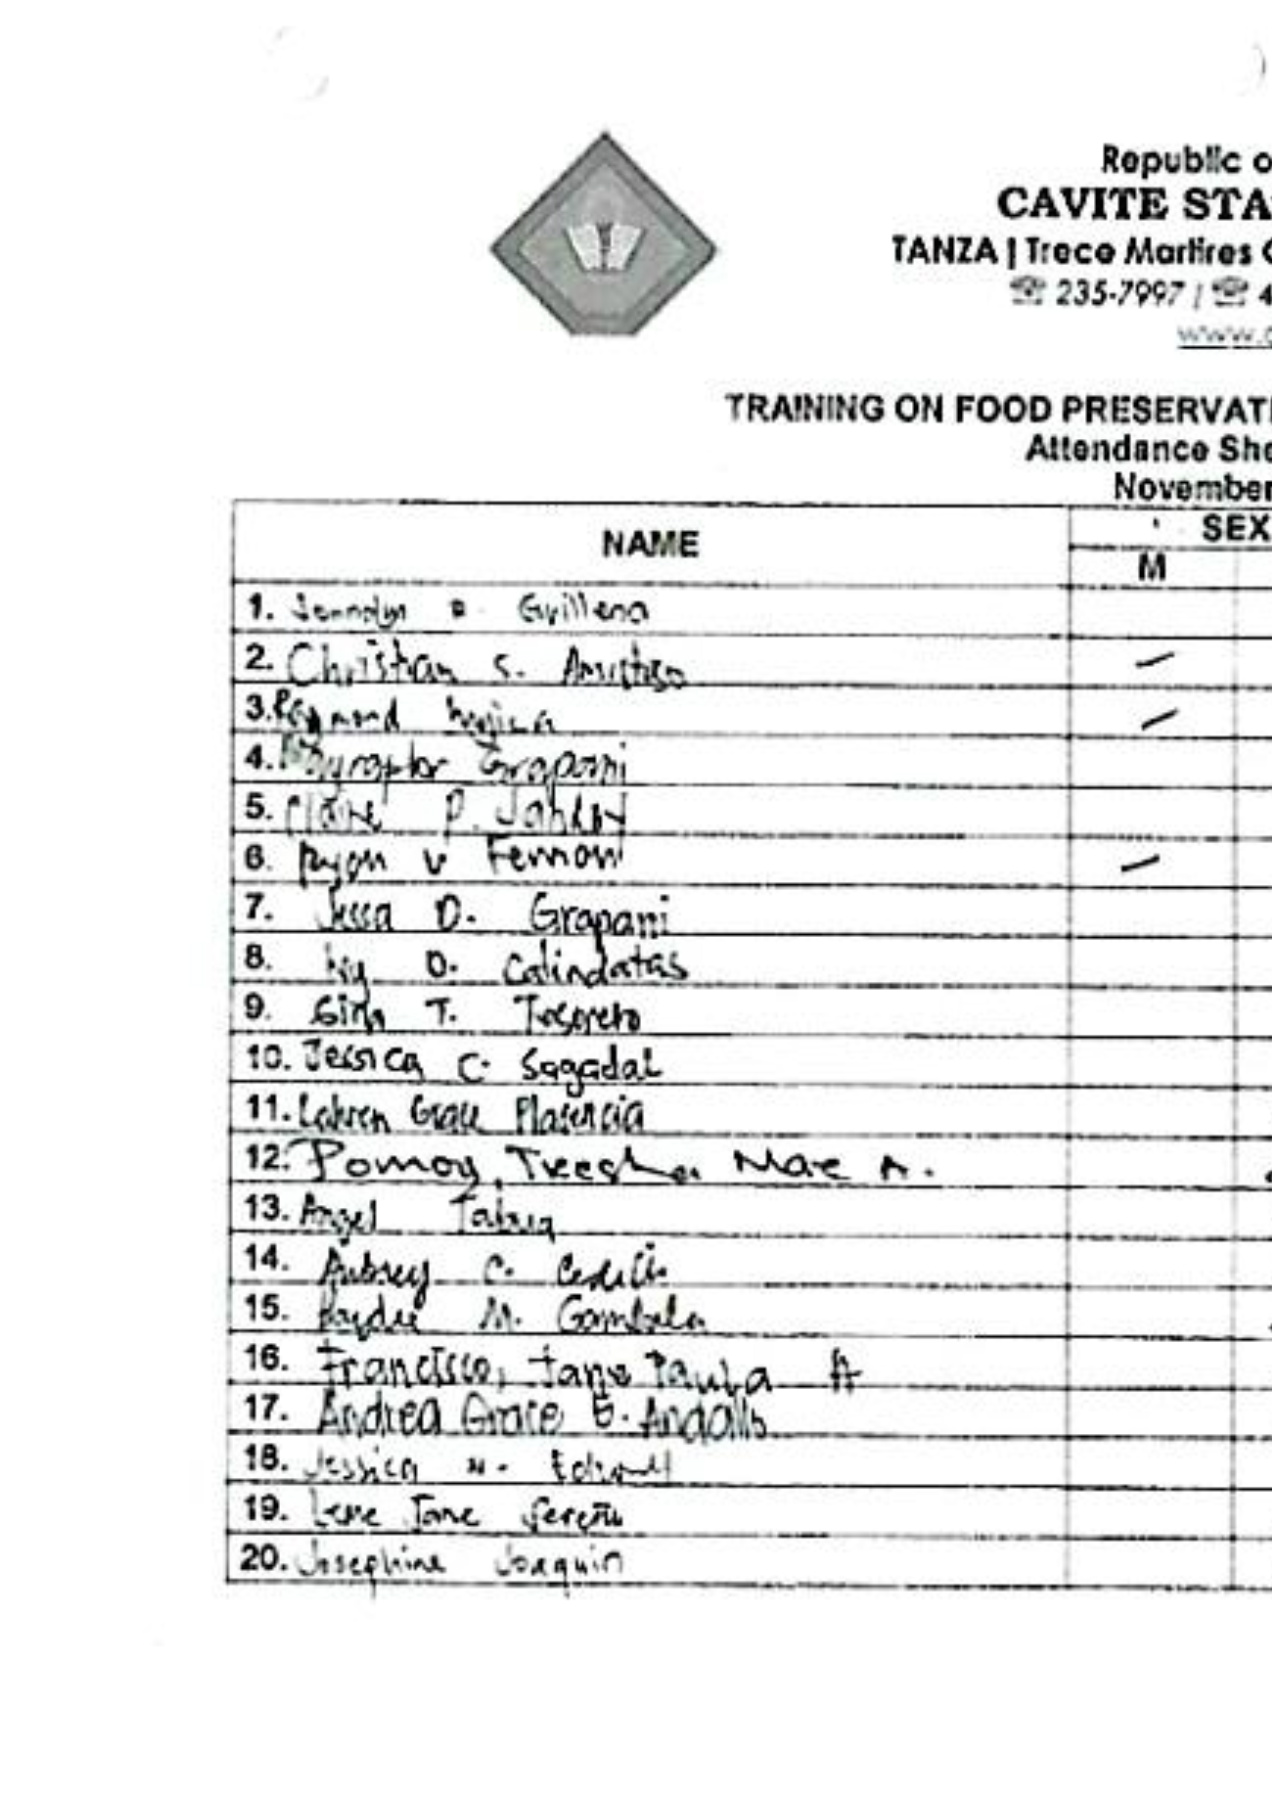 Republic o
CAVITE STA
TANZA | Trece Martires C
☏ 235-7997 / ☏ 4
www.c
TRAINING ON FOOD PRESERVATI
Attendance She
November
NAME
SEX
M
1. Guillena
2. Christian S.
3. Raymond Mojica
4. Grapani
5. Claire P.
6. Ryan V
7. Jessa D. Grapani
8. Ivy D. Calindatas
9. Gina T.
10. Jessica C. Sagadal
11. Grace Plasencia
12. Pomoy, Treesha Mae A.
13. Angel
14. Aubrey C. Cedillo
15. M. Gambala
16. Francisco, Jane Paula A
17. Andrea Grace G. Andallo
18. Jessica
19. Jane
20. Josephine Joaquin